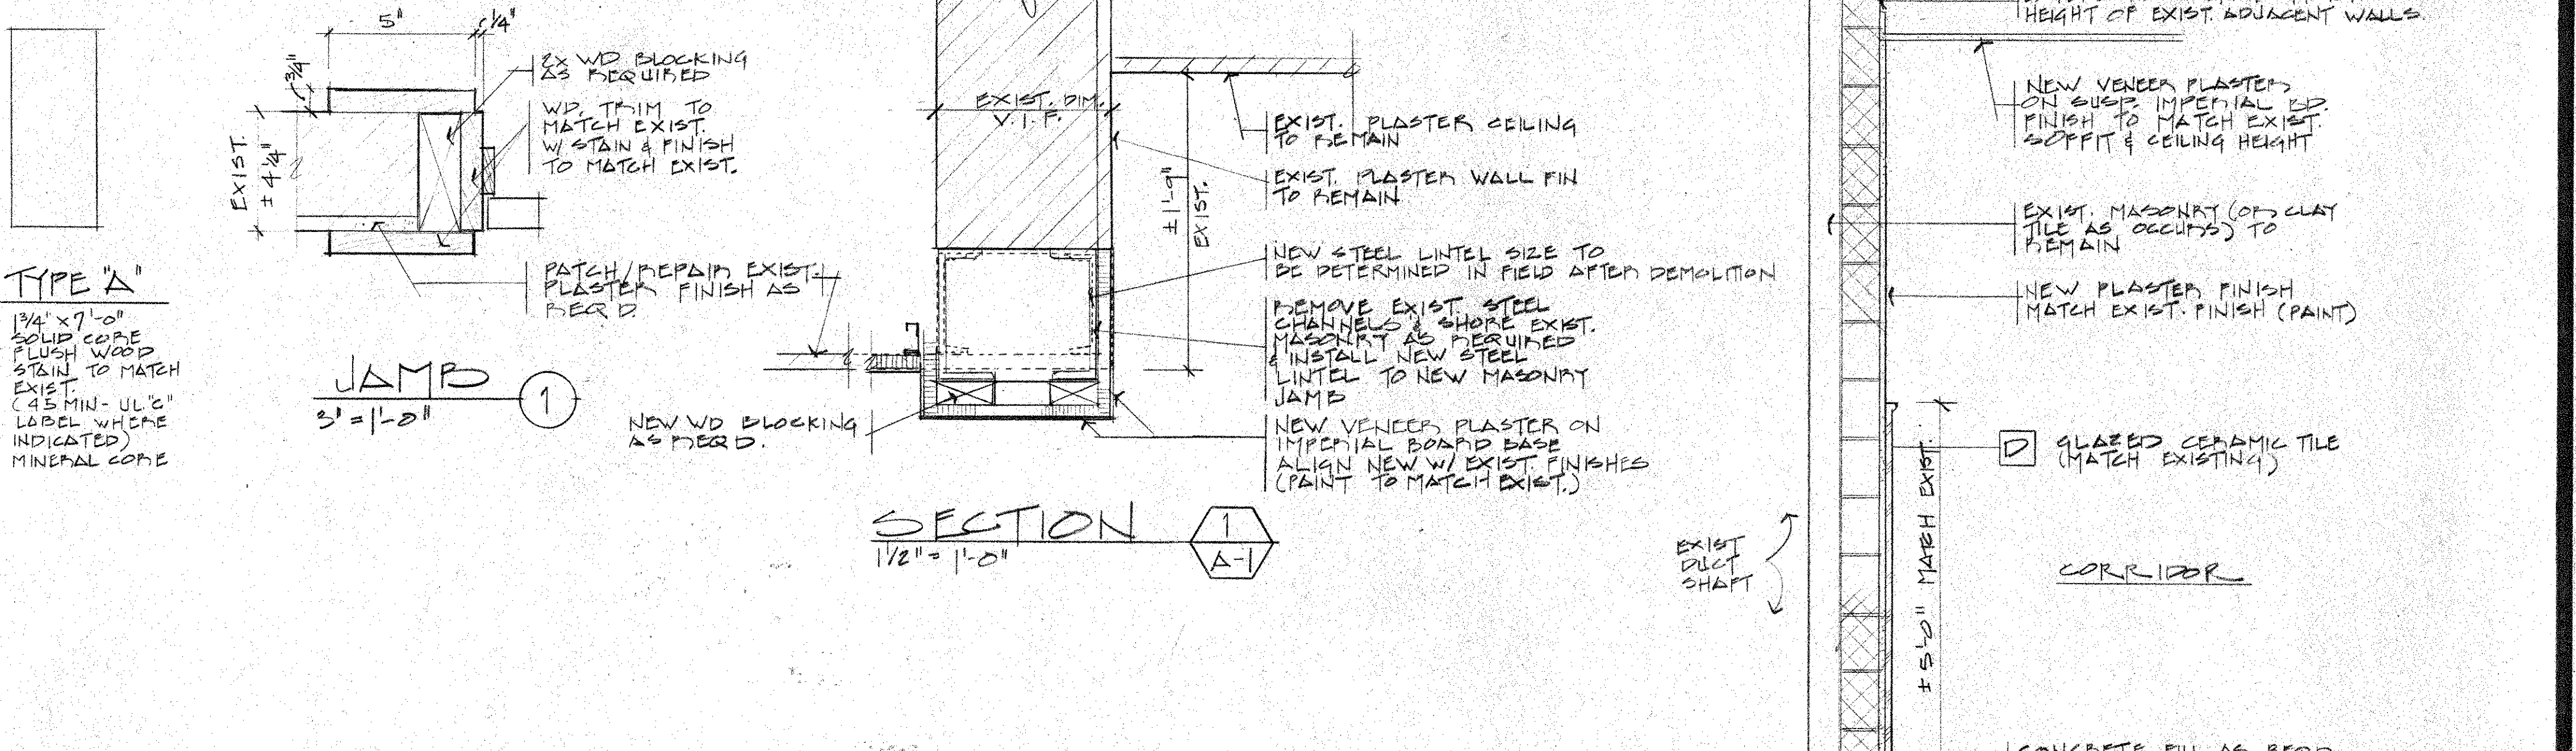 5"
1/4"
3/4"
EXIST.
± 4 1/4"
2x WD BLOCKING
AS REQUIRED
WD. TRIM TO
MATCH EXIST.
W/ STAIN & FINISH
TO MATCH EXIST.
PATCH/REPAIR EXIST.
PLASTER FINISH AS
REQ'D.
TYPE "A"
1 3/4" x 7'-0"
SOLID CORE
FLUSH WOOD
STAIN TO MATCH
EXIST.
(45 MIN - UL "C"
LABEL WHERE
INDICATED)
MINERAL CORE
JAMB
1
3" = 1'-0"
EXIST. DIM.
V.I.F.
± 1'-9"
EXIST.
EXIST. PLASTER CEILING
TO REMAIN
EXIST. PLASTER WALL FIN
TO REMAIN
NEW STEEL LINTEL SIZE TO
BE DETERMINED IN FIELD AFTER DEMOLITION
REMOVE EXIST. STEEL
CHANNELS & SHORE EXIST.
MASONRY AS REQUIRED
& INSTALL NEW STEEL
LINTEL TO NEW MASONRY
JAMB
NEW WD BLOCKING
AS REQ'D.
NEW VENEER PLASTER ON
IMPERIAL BOARD BASE
ALIGN NEW W/ EXIST. FINISHES
(PAINT TO MATCH EXIST.)
SECTION
1
A-1
1 1/2" = 1'-0"
HEIGHT OF EXIST. ADJACENT WALLS.
NEW VENEER PLASTER
ON SUSP. IMPERIAL BD.
FINISH TO MATCH EXIST.
SOFFIT & CEILING HEIGHT
EXIST. MASONRY (OR CLAY
TILE AS OCCURS) TO
REMAIN
NEW PLASTER FINISH
MATCH EXIST. FINISH (PAINT)
D
GLAZED CERAMIC TILE
(MATCH EXISTING)
± 5'-0" MATCH EXIST.
EXIST
DUCT
SHAFT
CORRIDOR
CONCRETE FILL AS REQD